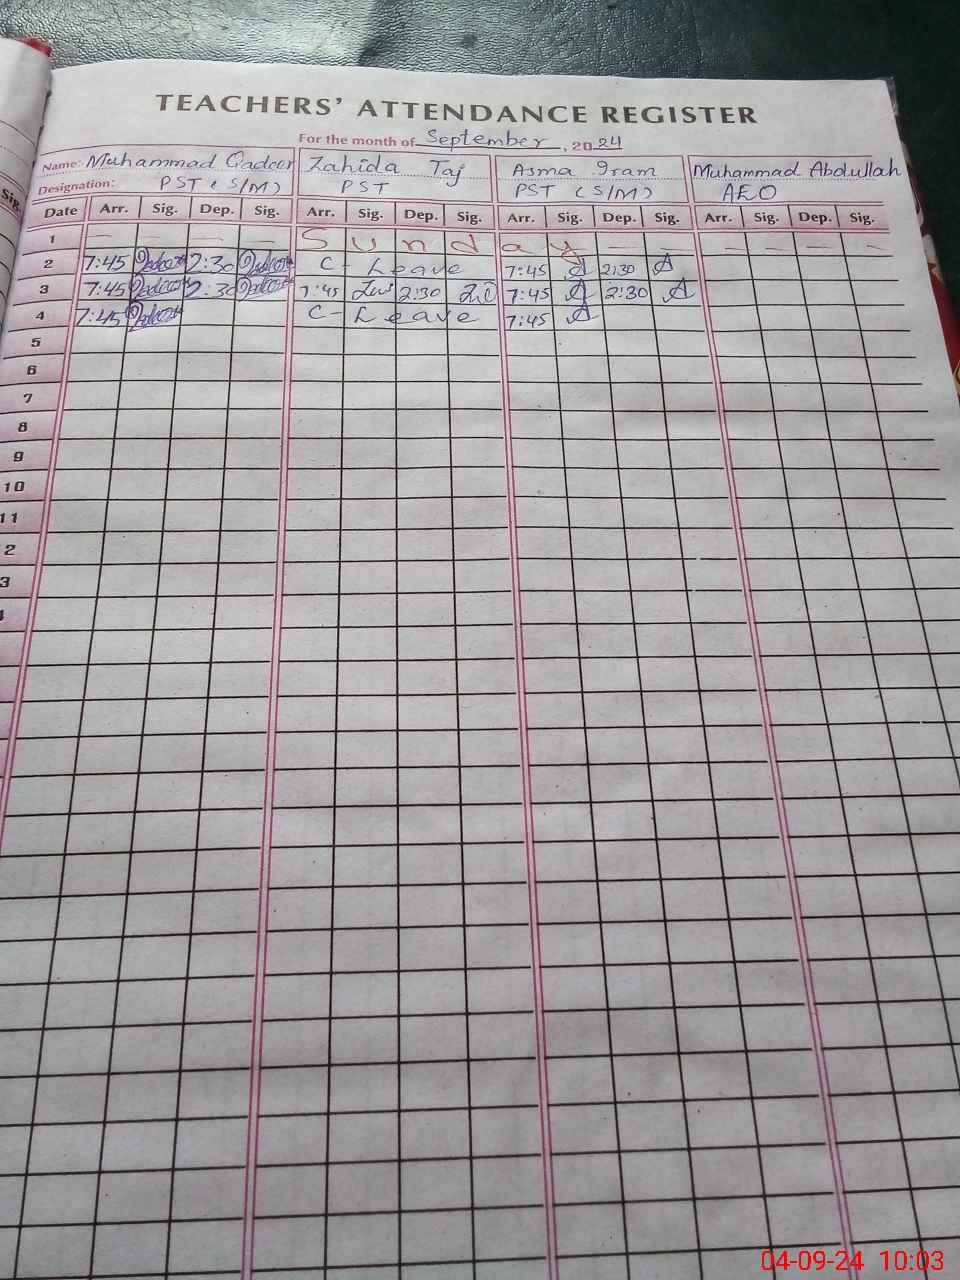 TEACHERS' ATTENDANCE REGISTER
For the month of September, 2024
Name: Muhammad Qadeer Zahida Taj Asma Iram Muhammad Abdullah
Designation: PST (S/M) PST PST (S/M) AEO
Date Arr. Sig. Dep. Sig. Arr. Sig. Dep. Sig. Arr. Sig. Dep. Sig. Arr. Sig. Dep. Sig.
1 — — — — Sunday — — — — — —
2 7:45 Qadeer 2:30 Qadeer C- Leave 7:45 A 2:30 A
3 7:45 Qadeer 2:30 Qadeer 7:45 2:30 7:45 A 2:30 A
4 7:45 Qadeer C- Leave 7:45 A
5
6
7
8
9
10
11
2
3
Sig.
04-09-24 10:03